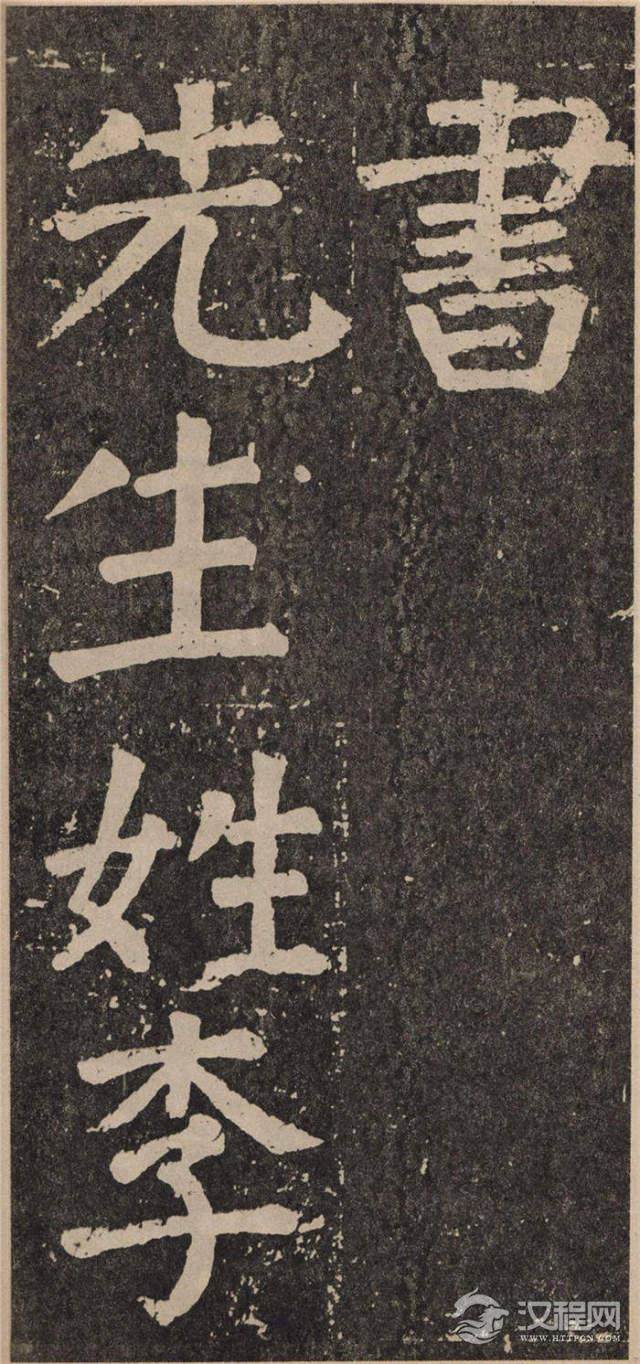 書
先生姓李
汉程网
WWW.HTTPCN.COM